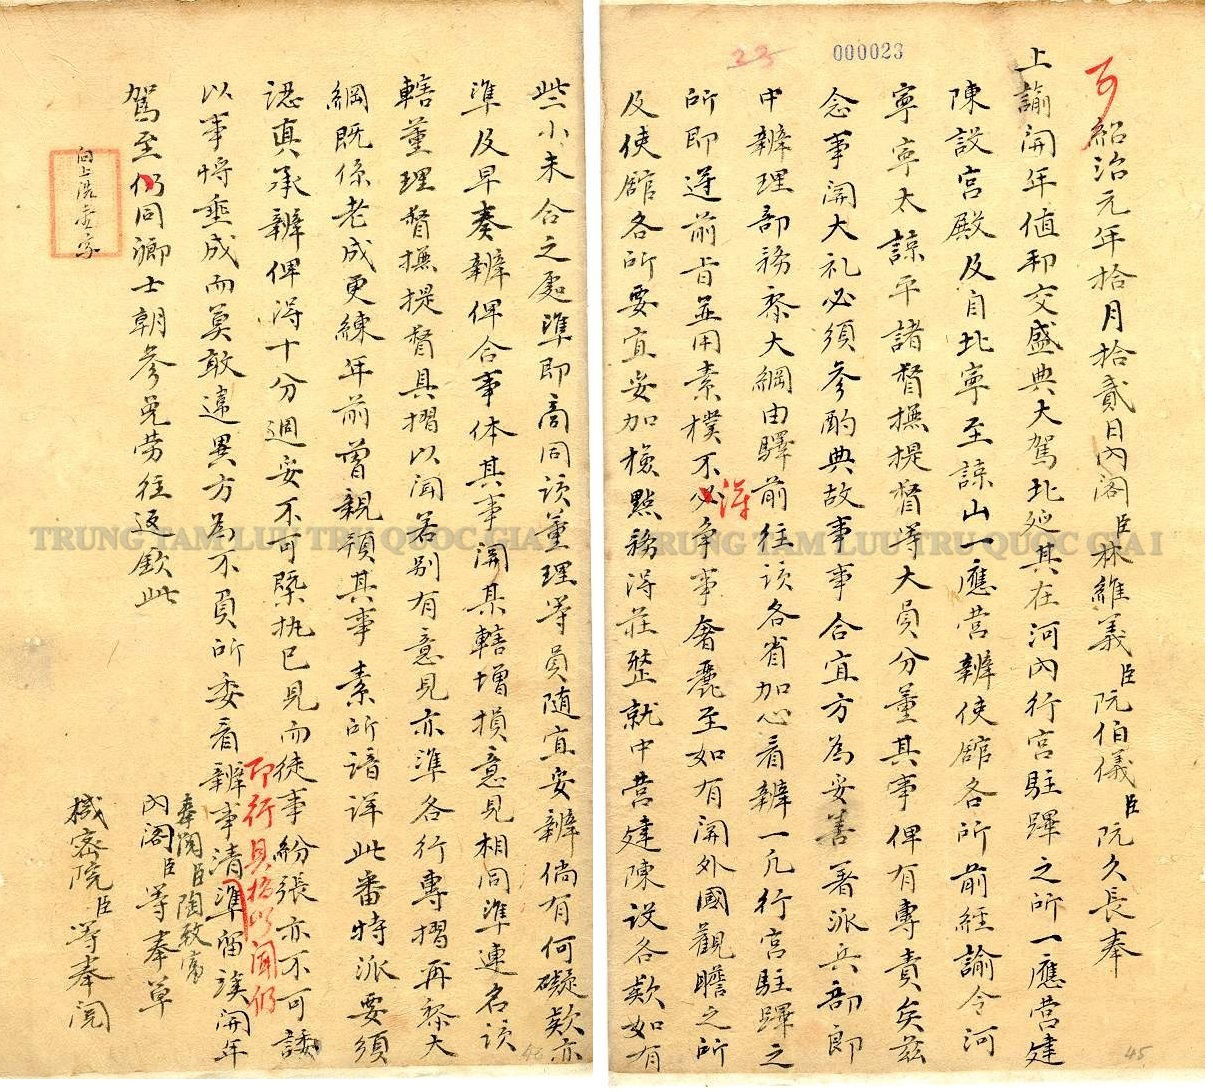 000023
23
可
紹治元年拾月拾貳日內閣臣林維義臣阮伯儀臣阮久長奉
上諭開年值邦交盛典大駕北延其在河內行宮駐蹕之所一應營建
陳設宮殿及自北寧至諒山一應營辦使館各所前經諭令河
寧寧太諒平諸督撫提督等大員分董其事俾有專責矣茲
念事關大礼必須參酌典故事事合宜方為妥善著派兵部郎
中辦理部務黎大綱由驛前往該各省加心看辦一凡行宮駐蹕之
所即遵前旨並用素樸不必爭事奢麗至如有關外國觀瞻之所
洋
及使館各所要宜妥加檢點務得莊整就中營建陳設各欵如有
45
些小未合之處準即商同該董理等員隨宜妥辦倘有何礙欵亦
準及早奏辦俾合事体其事關某轄增損意見相同準連名該
轄董理督撫提督具摺以聞若別有意見亦準各行專摺再黎大
綱既係老成更練年前曾親預其事素所諳詳此番特派要須
認真承辦俾得十分週妥不可槩执已見而徒事紛張亦不可諉
以事將垂成而莫敢違異方為不負所委看辦事清準留該開年
即行具摺以聞仍
駕至仍同鄉士朝參免勞往返欽此
奉閱臣陶致富
內閣臣等奉草
機密院臣等奉閱
46
TRUNG TAM LUU TRU QUOC GIA I
TRUNG TAM LUU TRU QUOC GIA I